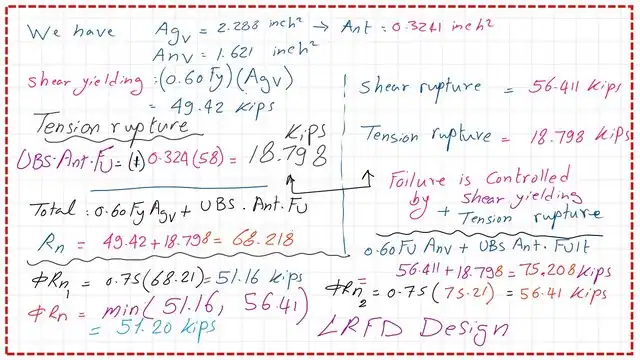 We have Agv = 2.288 inch² → Ant = 0.3241 inch²
Anv = 1.621 inch²
shear yielding: (0.60Fy)(Agv)
= 49.42 kips
Tension rupture
UBS.Ant.FU = (1) 0.324(58) = 18.798 Kips
Total: 0.60FyAgv + UBS.Ant.FU
Rn = 49.42 + 18.798 = 68.218
ΦRn1 = 0.75(68.21) = 51.16 Kips
ΦRn = min(51.16, 56.41)
= 51.20 Kips
Shear rupture = 56.411 Kips
Tension rupture = 18.798 Kips
Failure is Controlled
by shear yielding
+ Tension rupture
0.60FU Anv + UBS Ant. FUlt
56.411 + 18.798 = 75.208 Kips
ΦRn2 = 0.75(75.21) = 56.41 Kips
LRFD Design